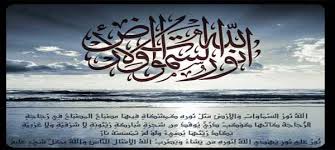 الله نور السموات والأرض
الله نور السماوات والأرض مثل نوره كمشكاة فيها مصباح المصباح في زجاجة
الزجاجة كأنها كوكب دري يوقد من شجرة مباركة زيتونة لا شرقية ولا غربية
يكاد زيتها يضيء ولو لم تمسسه نار
نور على نور يهدي الله لنوره من يشاء ويضرب الله الأمثال للناس والله بكل شيء عليم